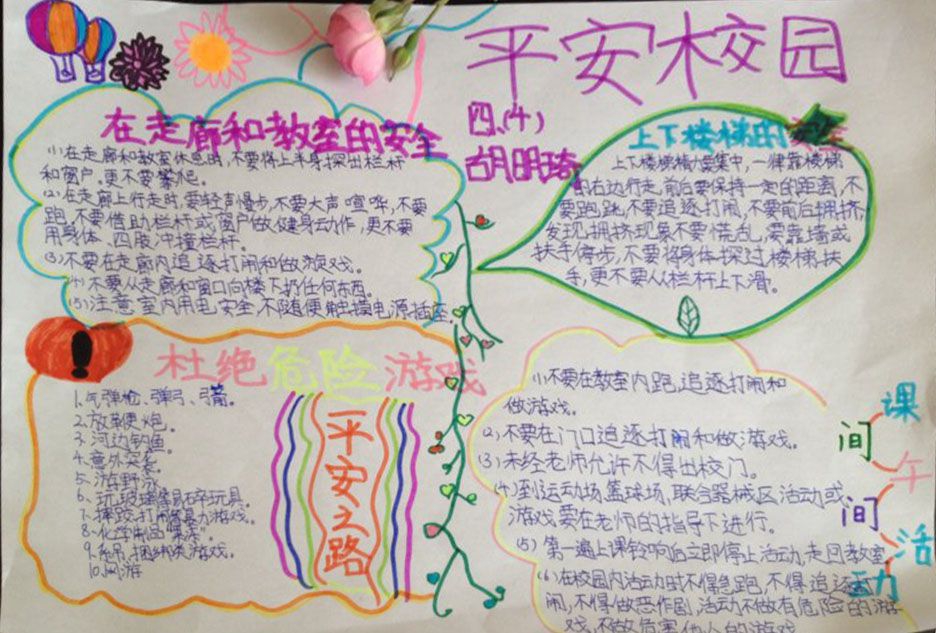 平安校园
四、(4)
胡明琦
在走廊和教室的安全
(1)在走廊和教室休息时,不要将上半身探出栏杆
和窗户,更不要攀爬。
(2)在走廊上行走时,要轻声慢步,不要大声喧哗,不要
跑,不要借助栏杆或窗户做健身动作,更不要
用身体、四肢冲撞栏杆。
(3)不要在走廊内追逐打闹和做游戏。
(4)不要从走廊和窗口向楼下扔任何东西。
(5)注意室内用电安全,不随便触摸电源插座。
上下楼梯的安全
上下楼梯精力要集中,一律靠楼梯
的右边行走,前后要保持一定的距离,不
要跑跳,不要追逐打闹,不要前后拥挤,
发现拥挤现象不要慌乱,要靠墙或
扶手停步,不要将身体探过楼梯扶
手,更不要从栏杆上下滑。
杜绝危险游戏
1.气弹枪、弹弓、弓箭。
2.放鞭炮。
3.河边钓鱼。
4.意外突袭。
5.游野泳
6.玩玻璃等易碎玩具。
7.摔跤、打闹等暴力游戏。
8.化学制品“果冻”。
9.绳捆绑类游戏。
10.网游
平安之路
课间午间活动
(1)不要在教室内跑,追逐打闹和
做游戏。
(2)不要在门口追逐打闹和做游戏。
(3)未经老师允许不得出校门。
(4)到运动场,篮球场,联合器械区活动或
游戏要在老师的指导下进行。
(5)第一遍上课铃响后立即停止活动,走回教室
(6)在校园内活动时不得急跑,不得追逐打
闹,不得做恶作剧,活动不做有危险的游
戏,不做危害他人的游戏